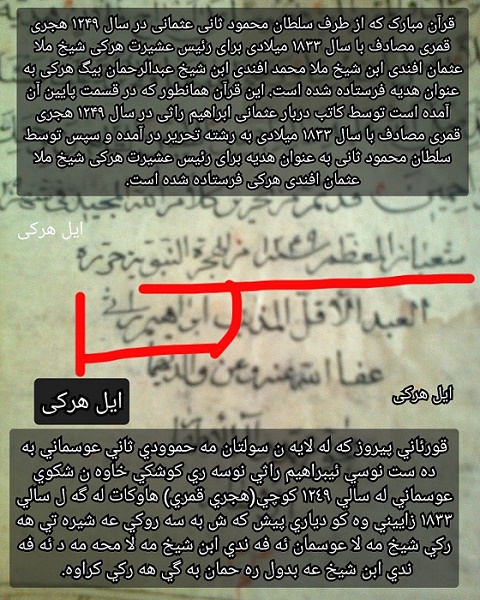 قرآن مبارک که از طرف سلطان محمود ثانی عثمانی در سال ۱۲۴۹ هجری
قمری مصادف با سال ۱۸۳۳ میلادی برای رئیس عشیرت هرکی شیخ ملا
عثمان افندی ابن شیخ ملا محمد افندی ابن شیخ عبدالرحمان بیگ هرکی به
عنوان هدیه فرستاده شده است. این قرآن همانطور که در قسمت پایین آن
آمده است توسط کاتب دربار عثمانی ابراهیم راثی در سال ۱۲۴۹ هجری
قمری مصادف با سال ۱۸۳۳ میلادی به رشته تحریر در آمده و سپس توسط
سلطان محمود ثانی به عنوان هدیه برای رئیس عشیرت هرکی شیخ ملا
عثمان افندی هرکی فرستاده شده است.
ایل هرکی
شعبان المعظم من الهجرة النبوية حرره
العبد الأقل المذنب ابراهيم راثي
عفا الله عنه وعن والديهما
ایل هرکی
ایل هرکی
قورئاني پيروز كه له لايه ن سولتان مه حموودي ثاني عوسماني به
ده ست نوسي ئيبراهيم راثي نوسه ري كوشكي خاوه ن شكوي
عوسماني له سالي ١٢٤٩ كوچي(هجري قمري) هاوكات له گه ل سالي
١٨٣٣ زاييني وه كو دياري پيش كه ش به سه روكي عه شيره تي هه
ركي شيخ مه لا عوسمان ئه فه ندي ابن شيخ مه لا محه مه د ئه فه
ندي ابن شيخ عه بدول ره حمان به گي هه ركي كراوه.